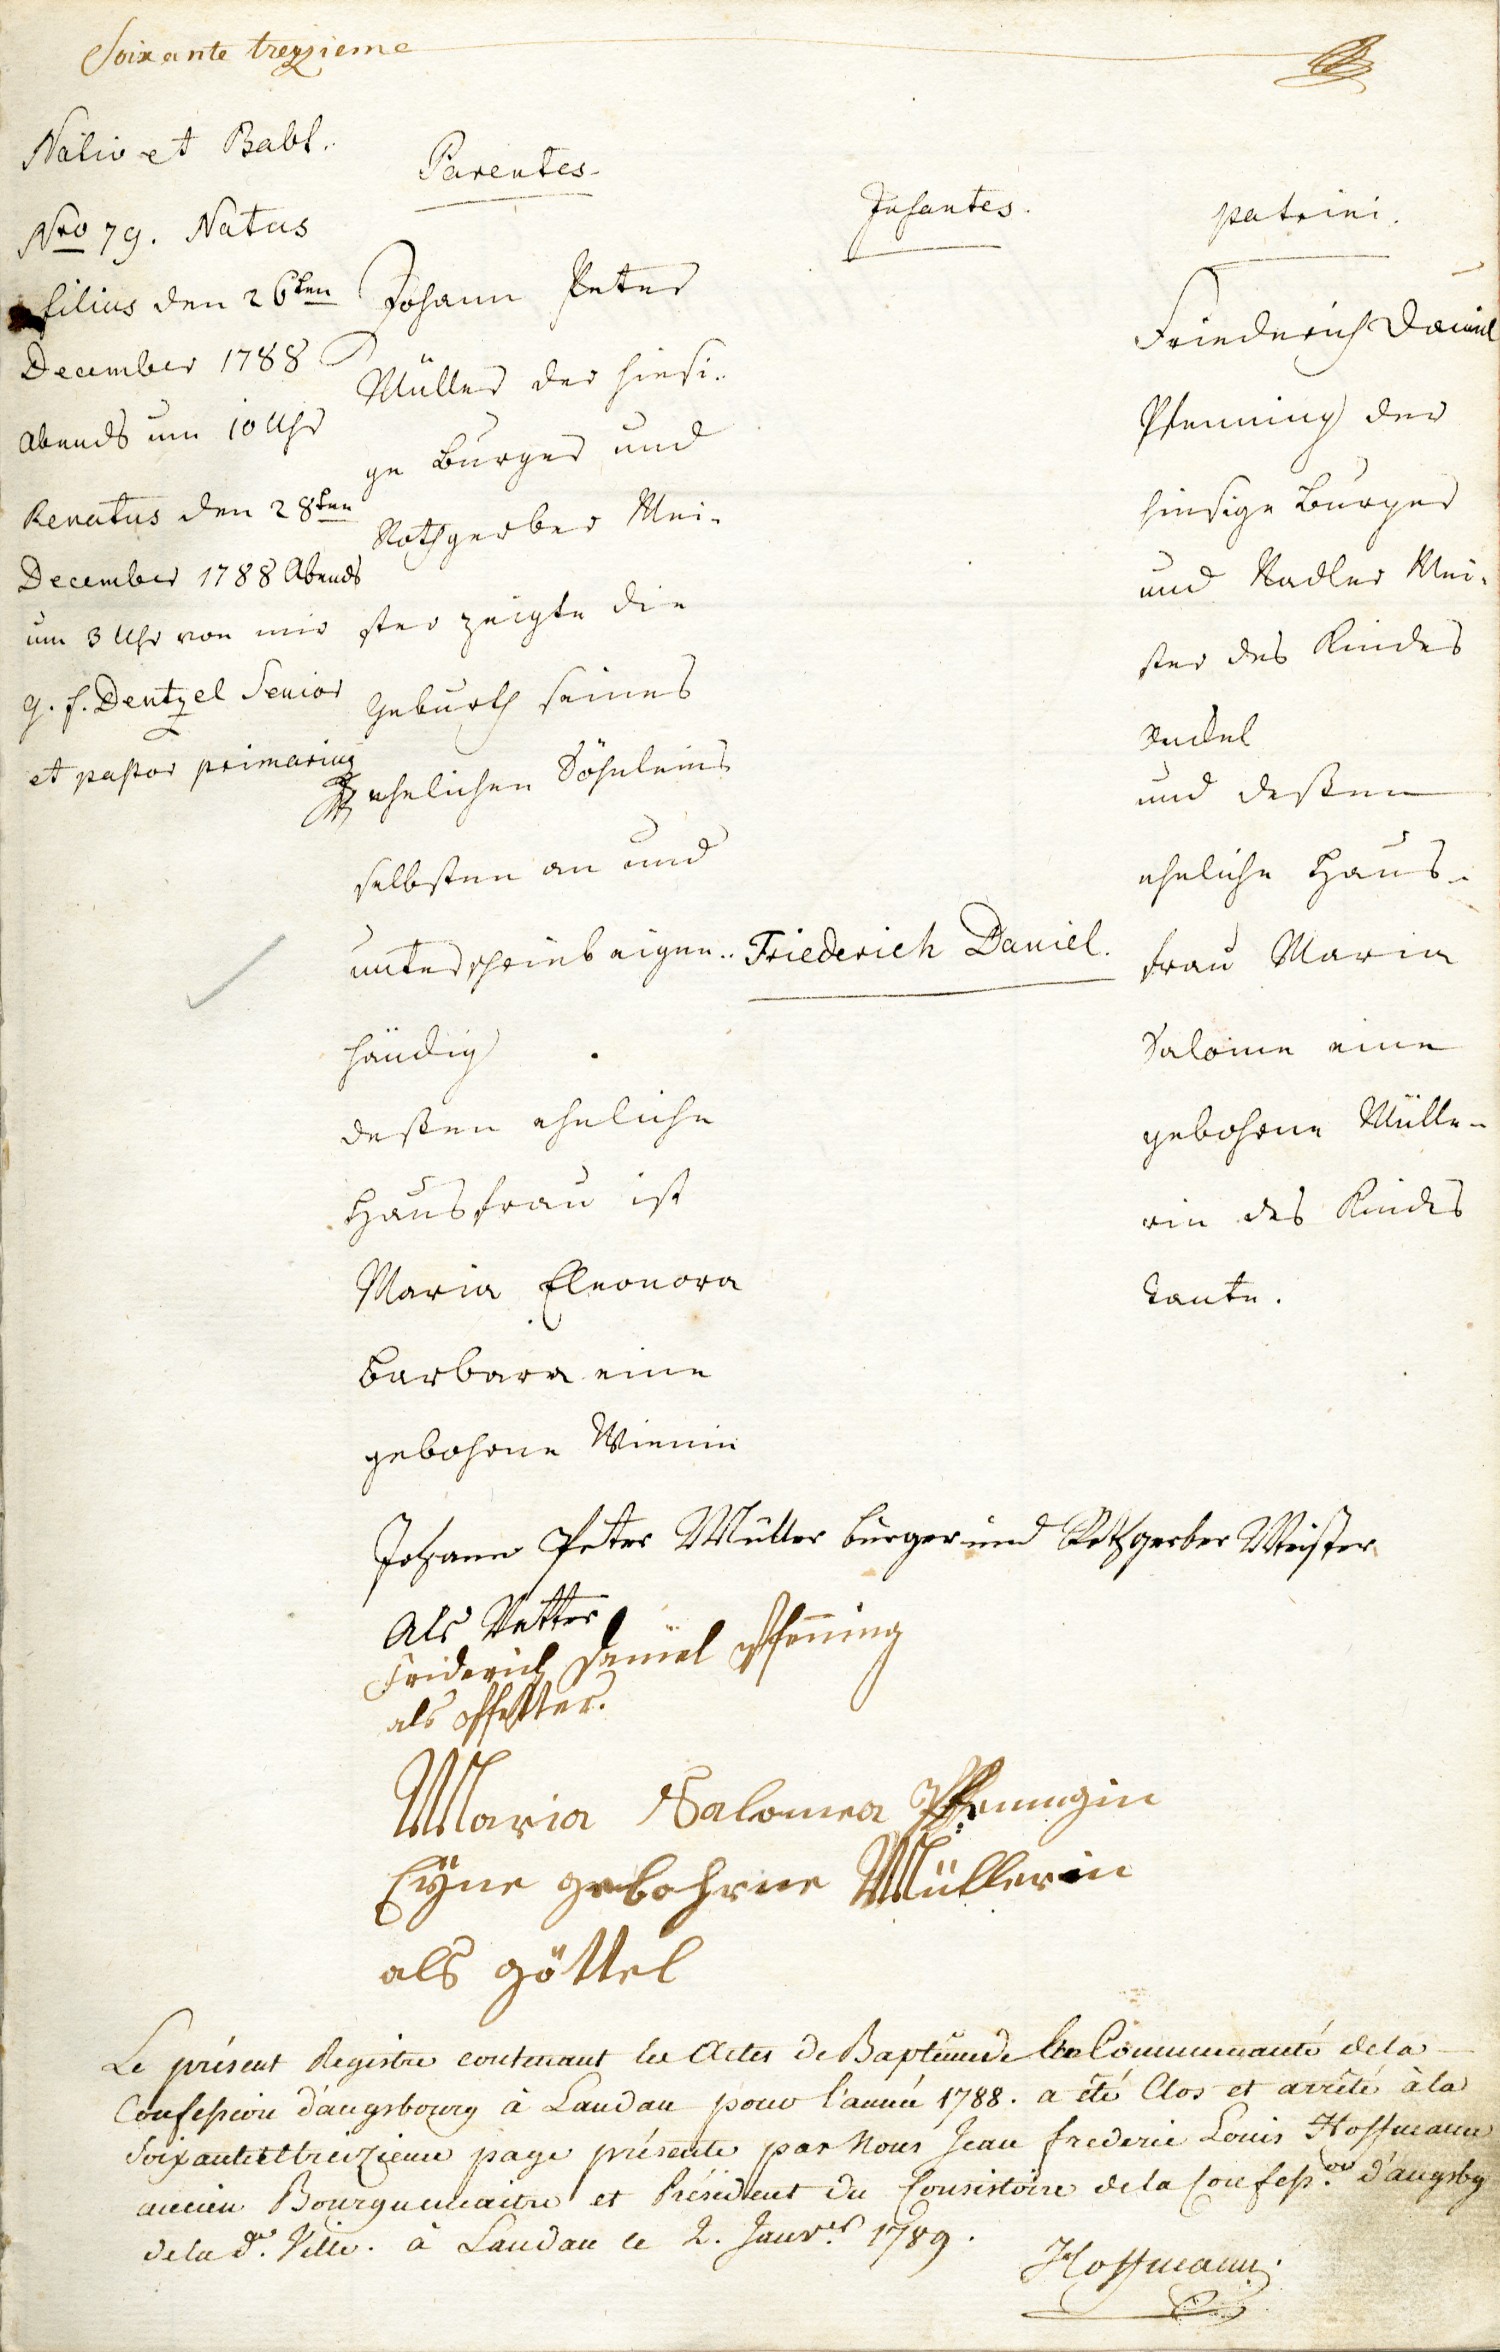 Soixante treyzieme
Nativ et Babt.
Nro 79. Natus
filius den 26ten
December 1788
Abends um 10 Uhr
Renatus den 28ten
December 1788 Abends
um 3 Uhr von mir
G. F. Dentzel Senior
et pastor primarius
Parentes
Johann Peter
Müller der hiesi-
ge Burger und
Rothgerber Mei-
ster zeigte die
Geburth seines
ehelichen Söhnleins
selbsten an und
unterschrieb eigen-
händig
deßen eheliche
Hausfrau ist
Maria Eleonora
Barbara eine
gebohrne
Infantes.
Friederich Daniel.
patrini.
Friederich Daniel
Pfenning der
hiesige Burger
und Nadler Mei-
ster des Kindes
und deßen
eheliche Haus-
frau Maria
Salome eine
gebohrne Mülle-
rin des Kindes
Tante.
Johann Peter Müller burger und Rothgerber Meister
Als Vatter
Friderich Daniel Pfenning
als Pfetter.
Maria Salomea Pfenningin
Eyne gebohrne Müllerin
als göttel
Le présent Registre contenant les Actes de Baptême de la Communauté de la
Confession d'augsbourg à Landau pour l'année 1788. a été Clos et arrêté à la
Soixante et treizieme page présente par Nous Jean frederic Louis Hoffmann
ancien Bourguemaitre et Président du Consistoire de la Confess.on d'augsbg
de la d.e Ville. à Landau le 2. Janv.er 1789.
Hoffmann